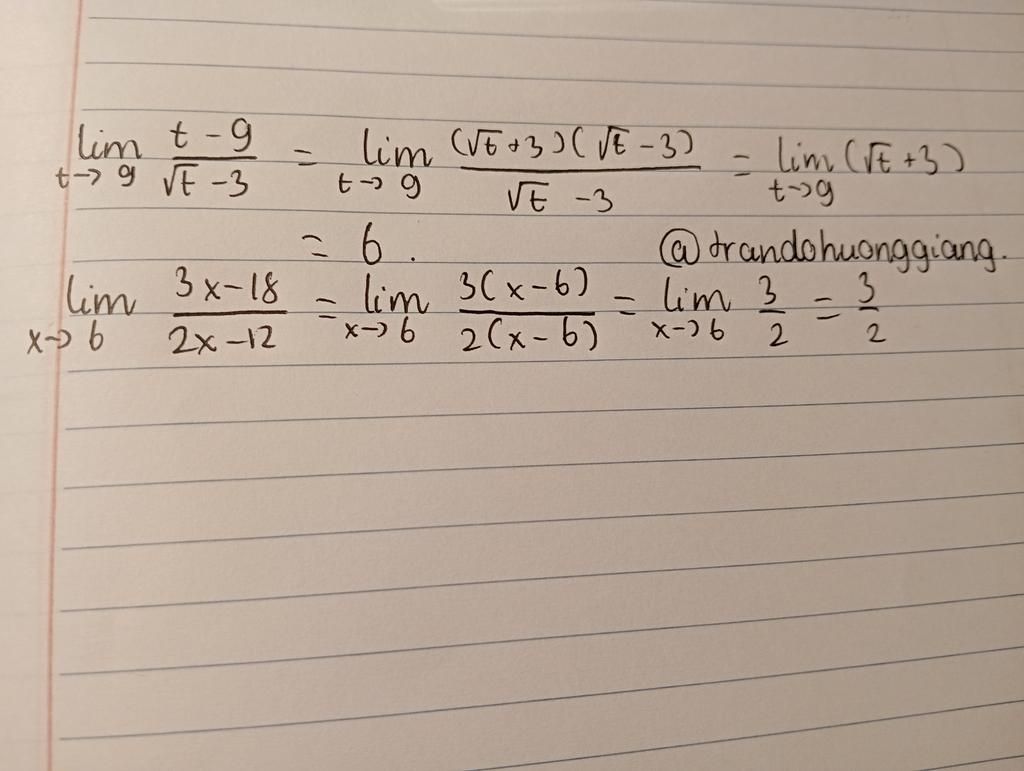 lim t→9 (t - 9)/(√t - 3) = lim t→9 ((√t + 3)(√t - 3))/(√t - 3) = lim t→9 (√t + 3)
= 6. @trandohuonggiang.
lim x→6 (3x - 18)/(2x - 12) = lim x→6 (3(x - 6))/(2(x - 6)) = lim x→6 3/2 = 3/2